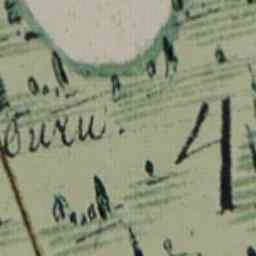 Curu.
4